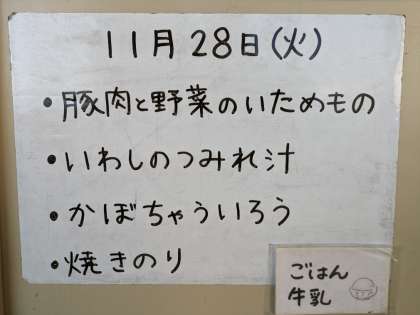 11月28日(火)
・豚肉と野菜のいためもの
・いわしのつみれ汁
・かぼちゃういろう
・焼きのり
ごはん
牛乳